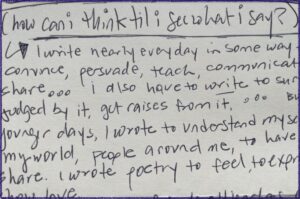 (how can i think til i see what i say?)
I write nearly everyday in some way
convince, persuade, teach, communicat
share... i also have to write to sur
judged by it, get raises from it, ...
younger days, I wrote to understand myse
my world, people around me, to have
share. I wrote poetry to feel, to expr
how love